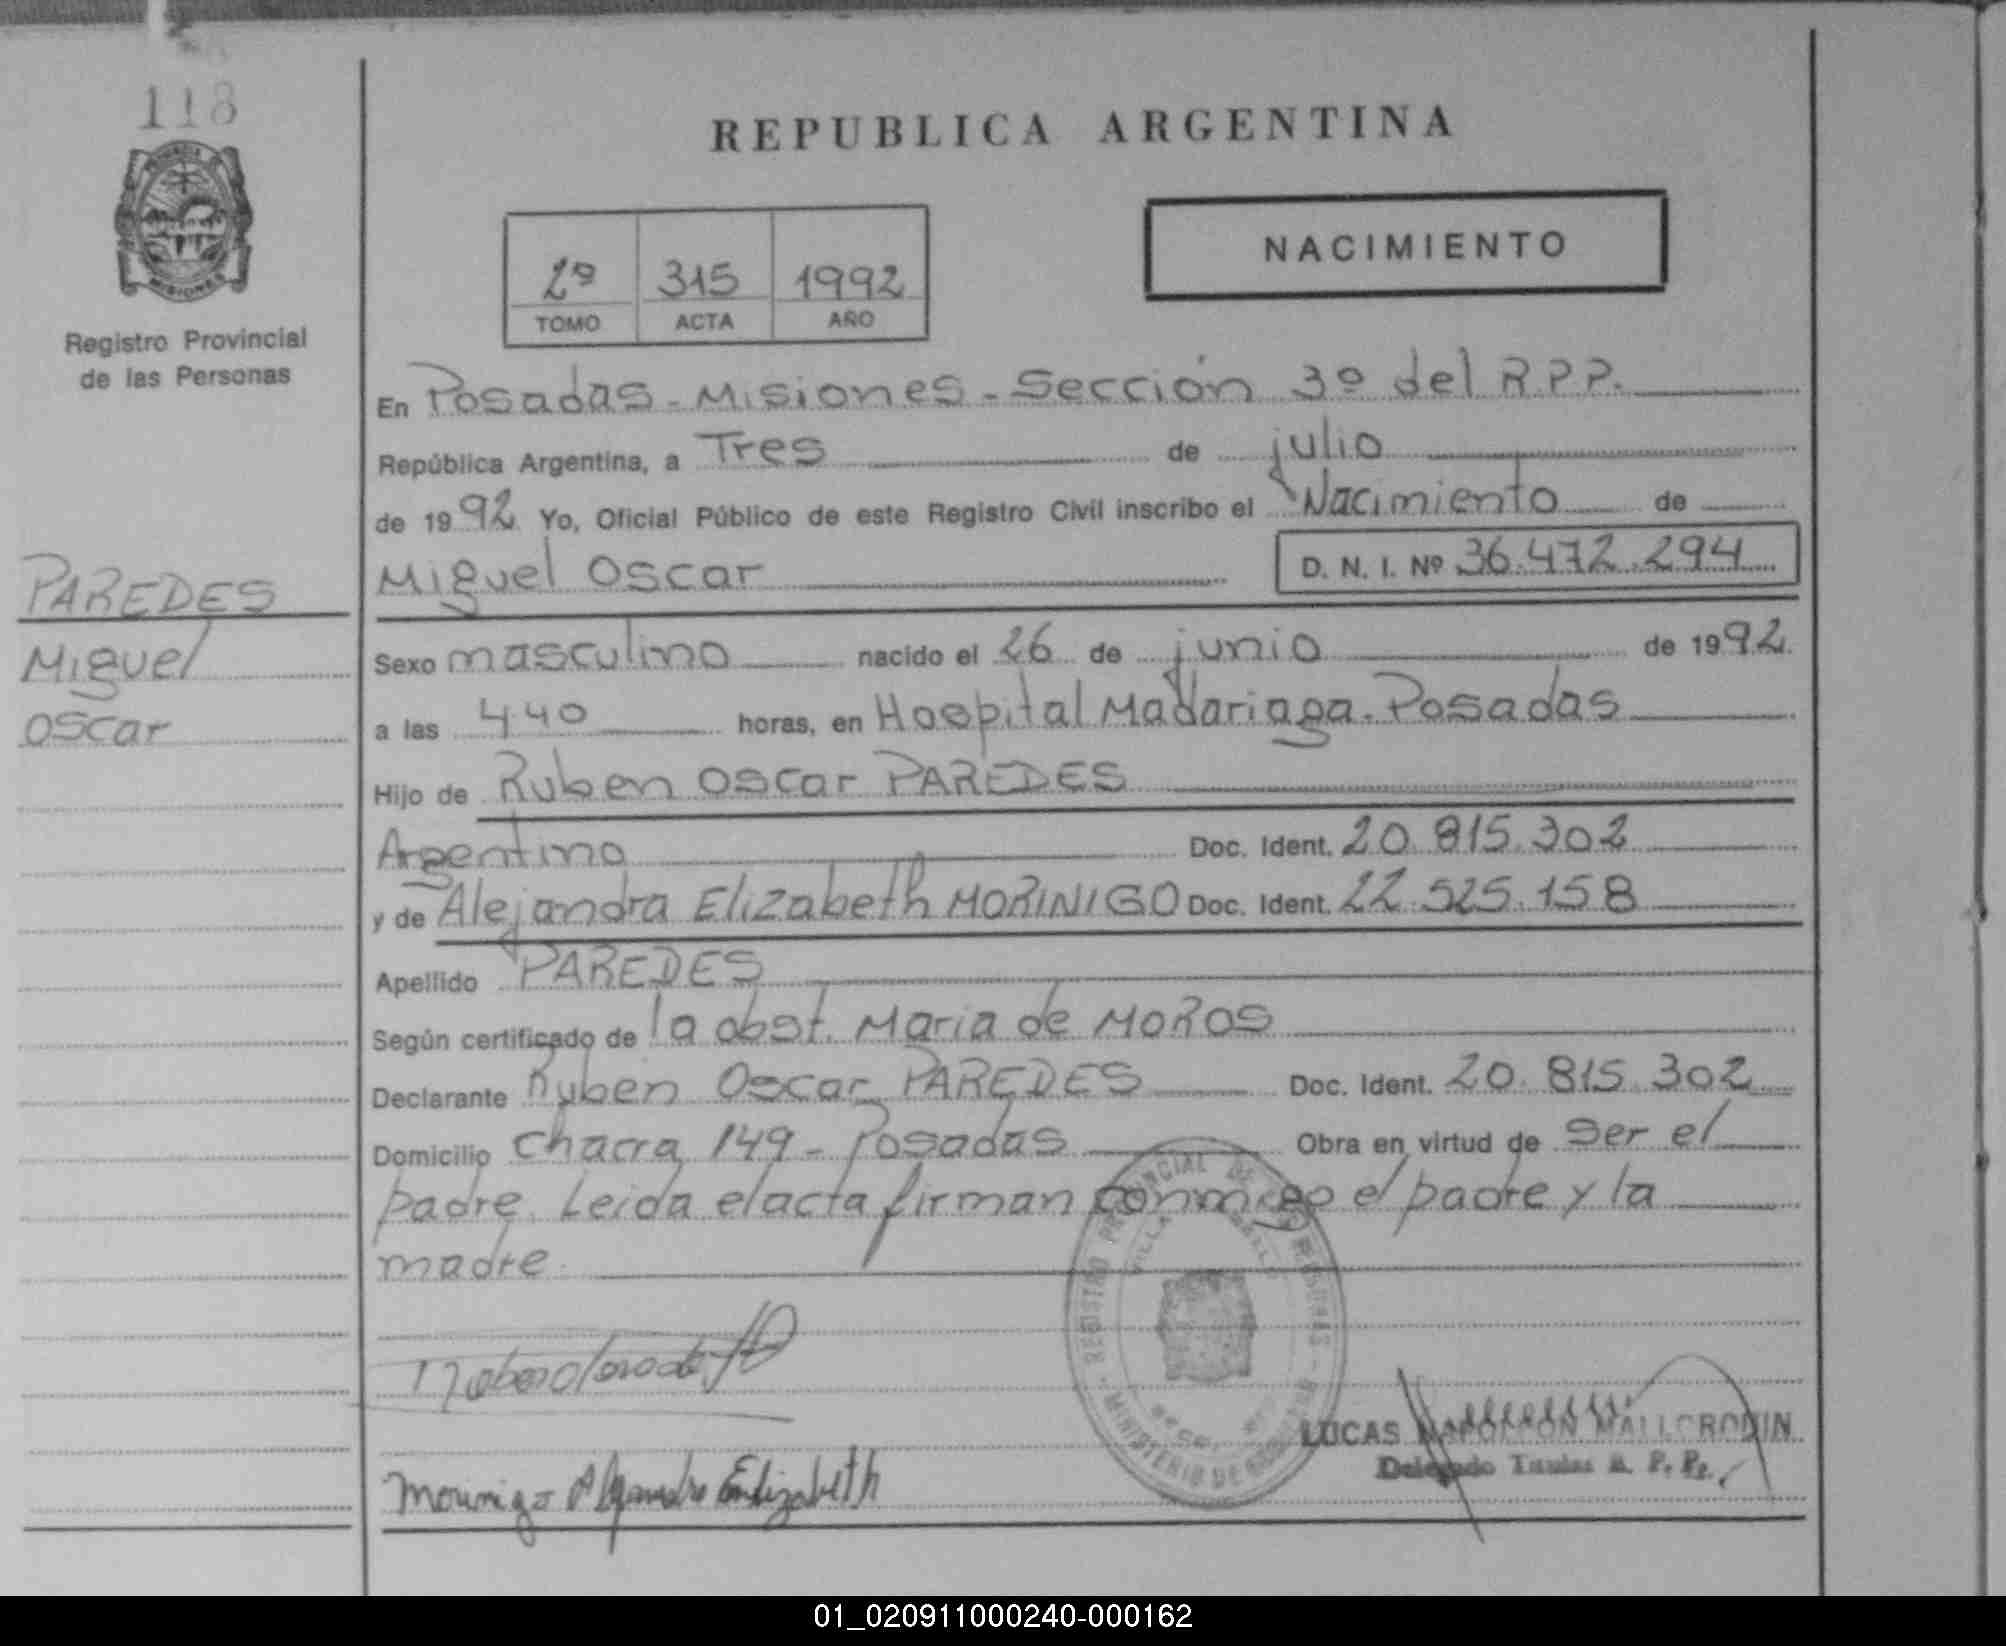 118
PROVINCIA
MISIONES
Registro Provincial
de las Personas
REPUBLICA ARGENTINA
NACIMIENTO
2º 315 1992
TOMO ACTA AÑO
En Posadas - Misiones - Sección 3º del R.P.P.
República Argentina, a Tres de julio
de 1992 Yo, Oficial Público de este Registro Civil inscribo el Nacimiento de
Miguel Oscar D. N. I. Nº 36.472.294
PAREDES
Miguel
Oscar
Sexo masculino nacido el 26 de junio de 1992.
a las 4.40 horas, en Hospital Madariaga. Posadas
Hijo de Ruben Oscar PAREDES
Argentino Doc. Ident. 20.815.302
y de Alejandra Elizabeth MORINIGO Doc. Ident. 22.525.158
Apellido PAREDES
Según certificado de la obst. Maria de MOROS
Declarante Ruben Oscar PAREDES Doc. Ident. 20.815.302
Domicilio Chacra 149 - Posadas Obra en virtud de ser el
padre. Leida el acta firman conmigo el padre y la
madre.
REGISTRO PROVINCIAL DE
MINISTERIO DE
LUCAS NAPOLEON
Delegado
Morinigo Alejandra Elizabeth
01_020911000240-000162